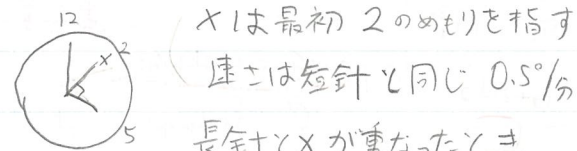 12
Xは最初 2のめもりを指す
X 2
速さは短針と同じ 0.5°/分
5
長針とXが重なったとき